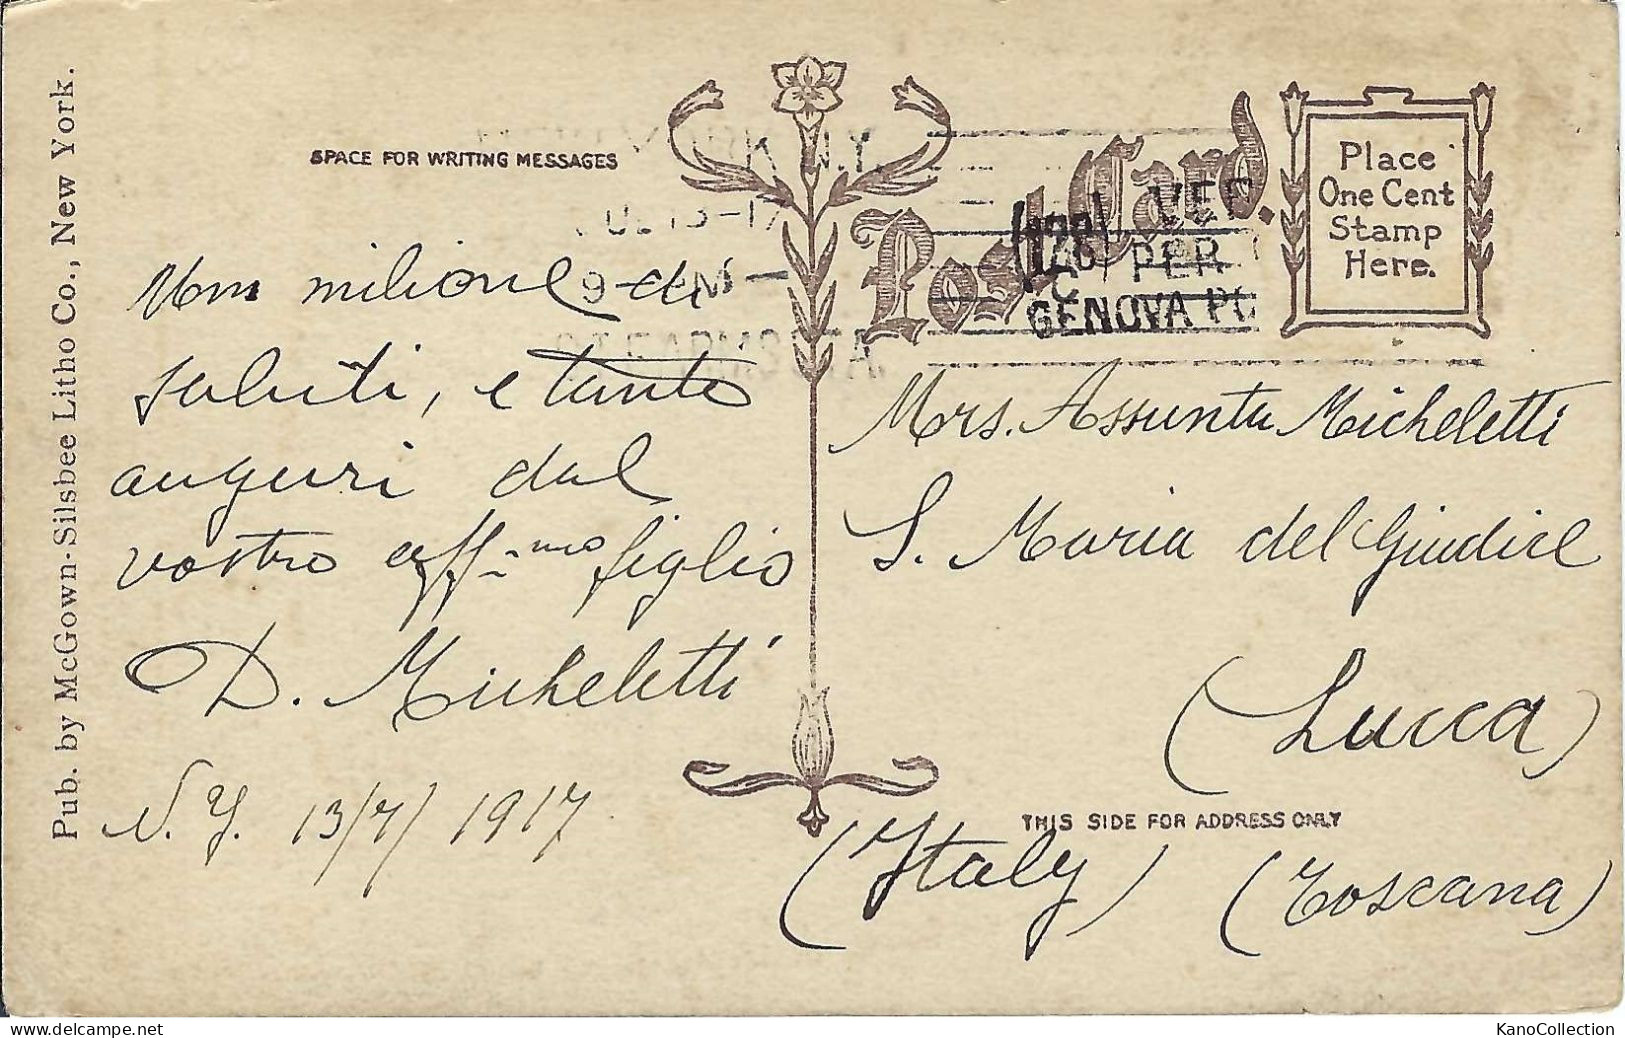 Pub. by McGown-Silsbee Litho Co., New York.
SPACE FOR WRITING MESSAGES
Post Card.
Place
One Cent
Stamp
Here.
N.Y.
9-PM
STA.
(128)
PER
GENOVA PO
milione di
saluti, e tante
auguri dal
vostro aff-mo figlio
D. Micheletti
N.Y. 13/7/1917
Mrs. Assunta Micheletti
S. Maria del Giudice
(Lucca)
THIS SIDE FOR ADDRESS ONLY
(Italy) (Toscana)
KanoCollection
www.delcampe.net